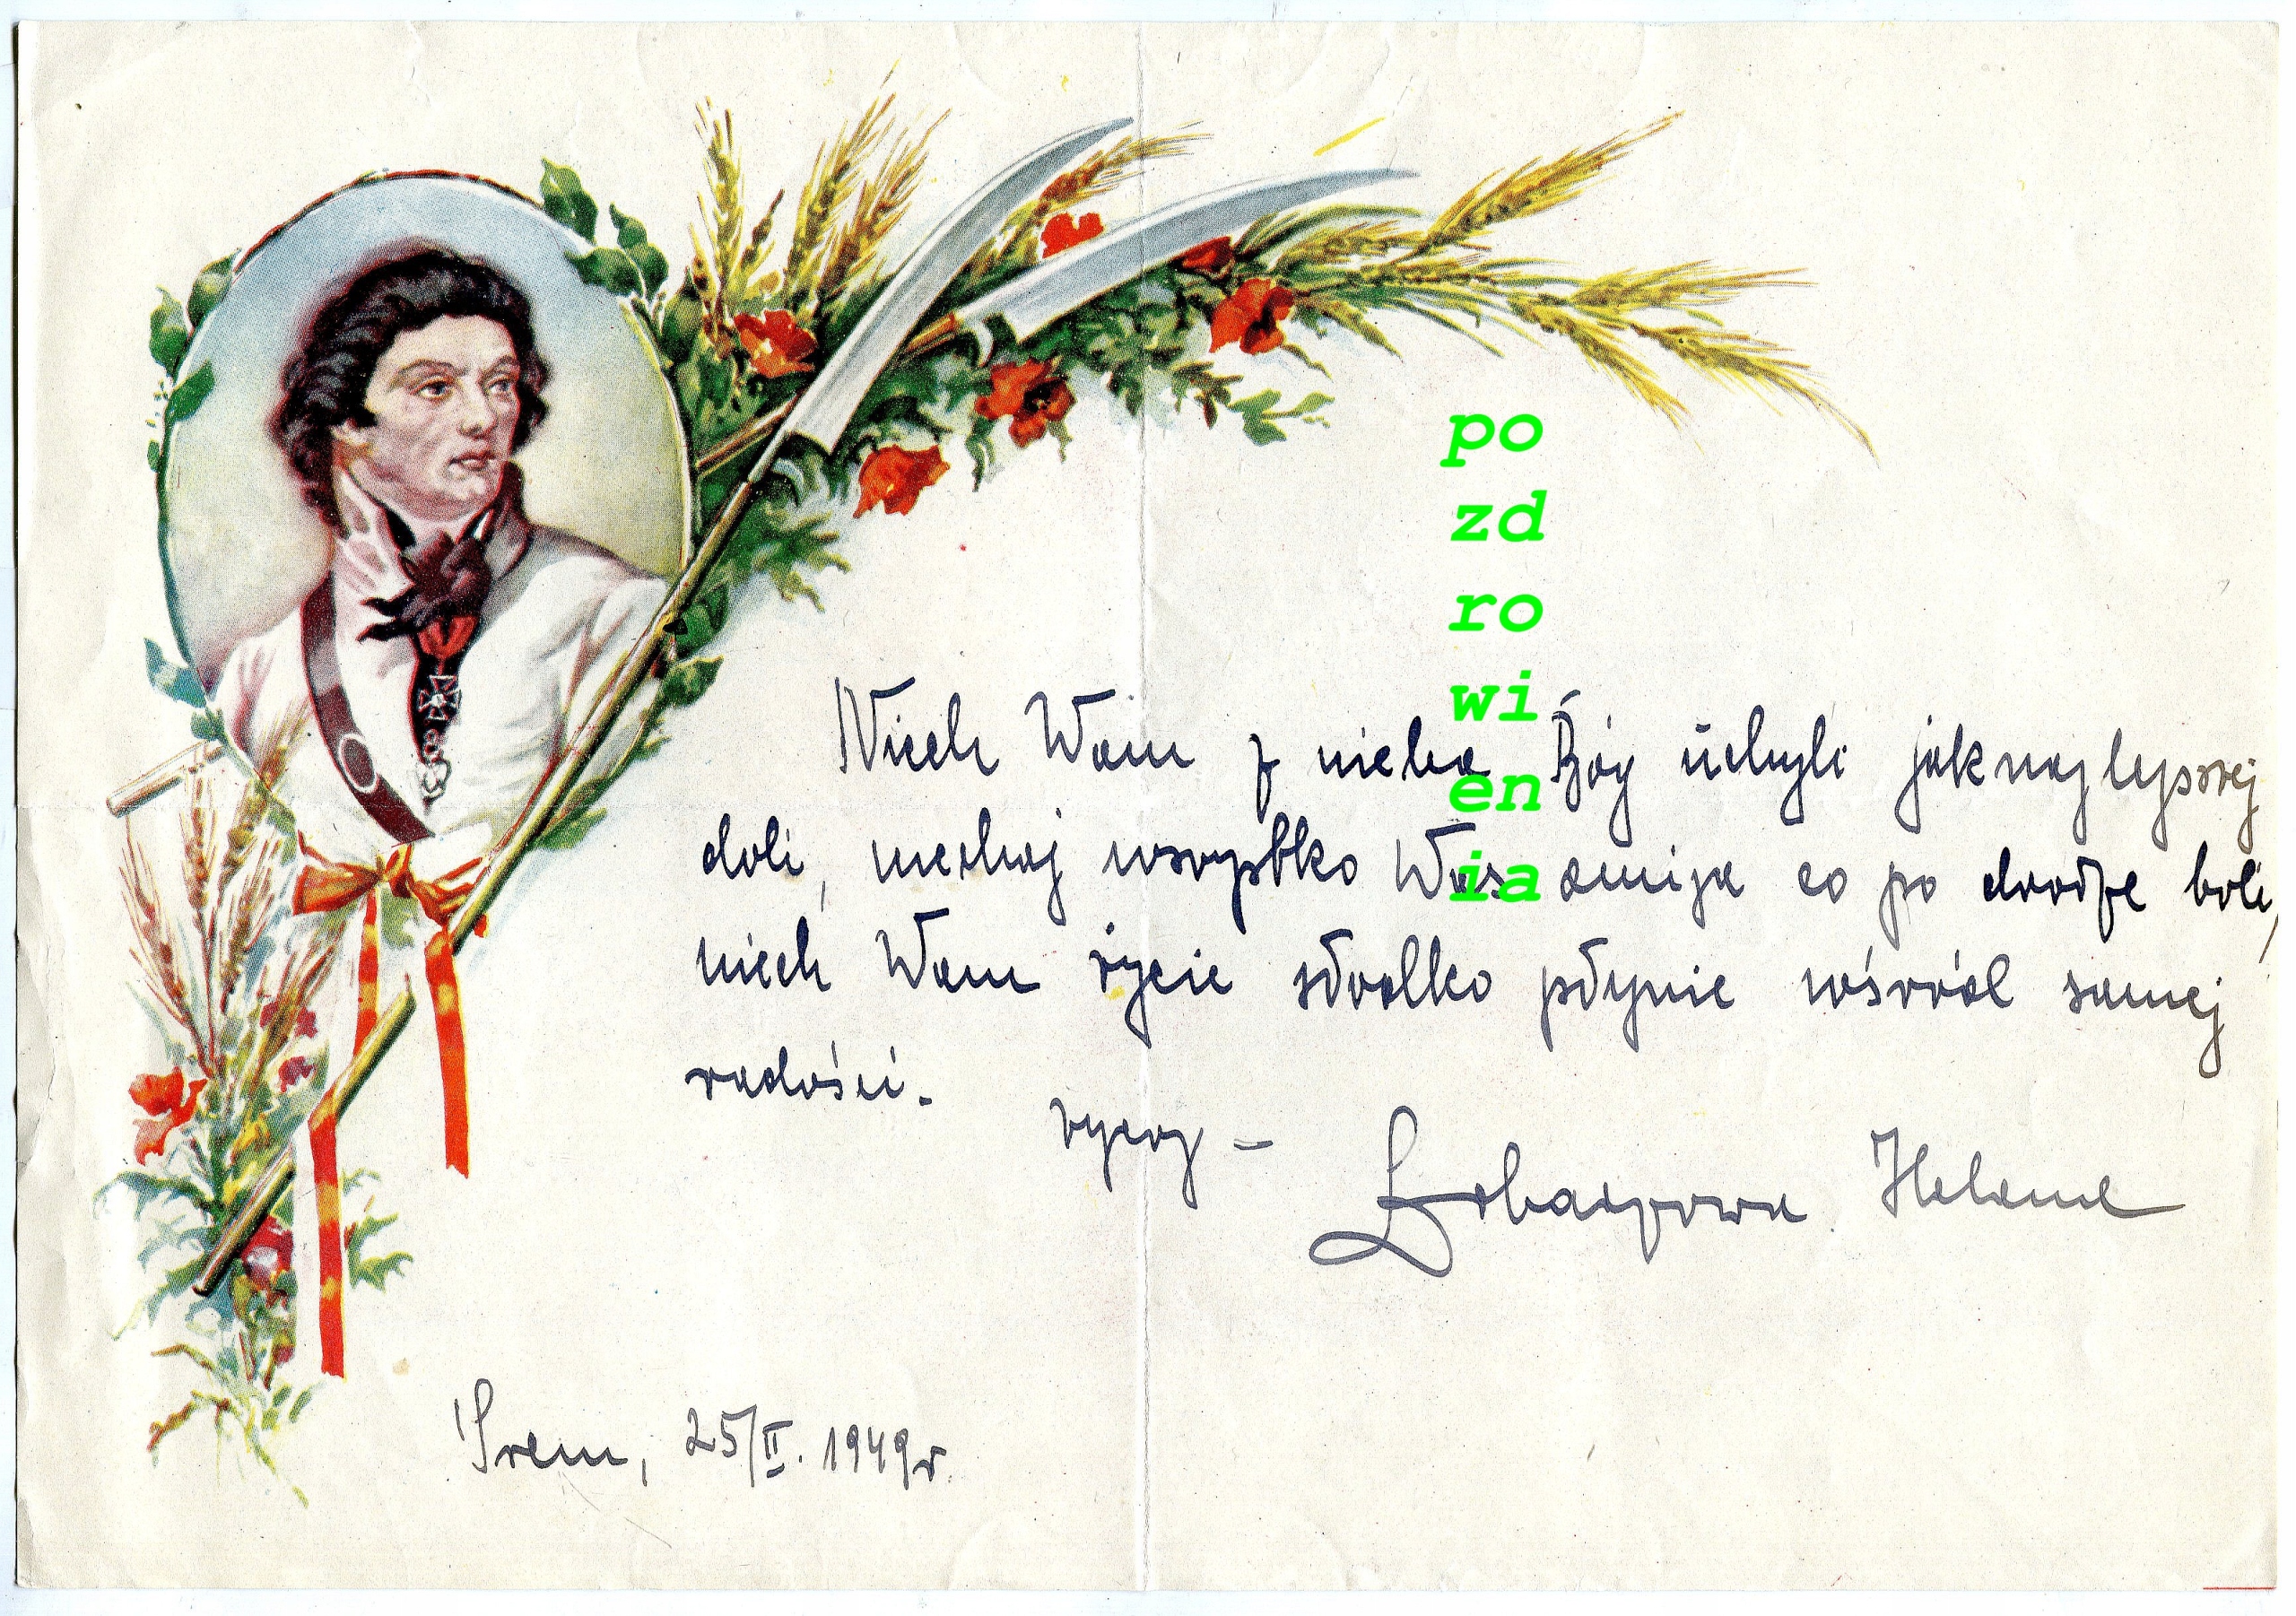 po
zd
ro
wi
en
ia
Niech Wam z nieba Bóg uchyli jaknajlepszej
doli, niechaj wszystko Was omija co po drodze boli,
niech Wam życie słodko płynie wśród samej
radości.
życzy –
Helena
Śrem, 25/II. 1949r.